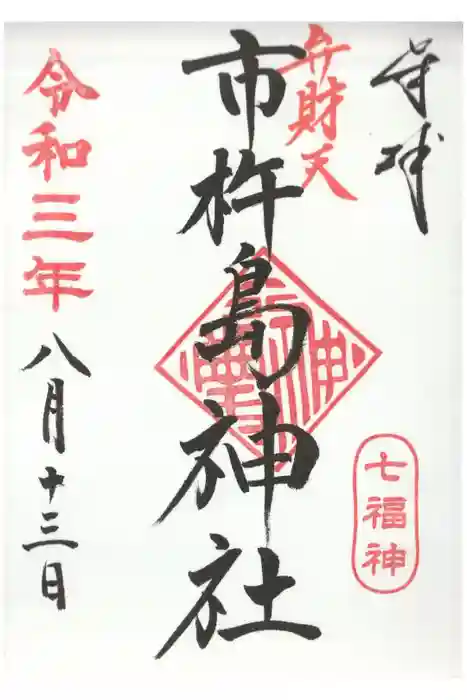 奉拝
弁財天
市杵島神社
七福神
令和三年八月十三日